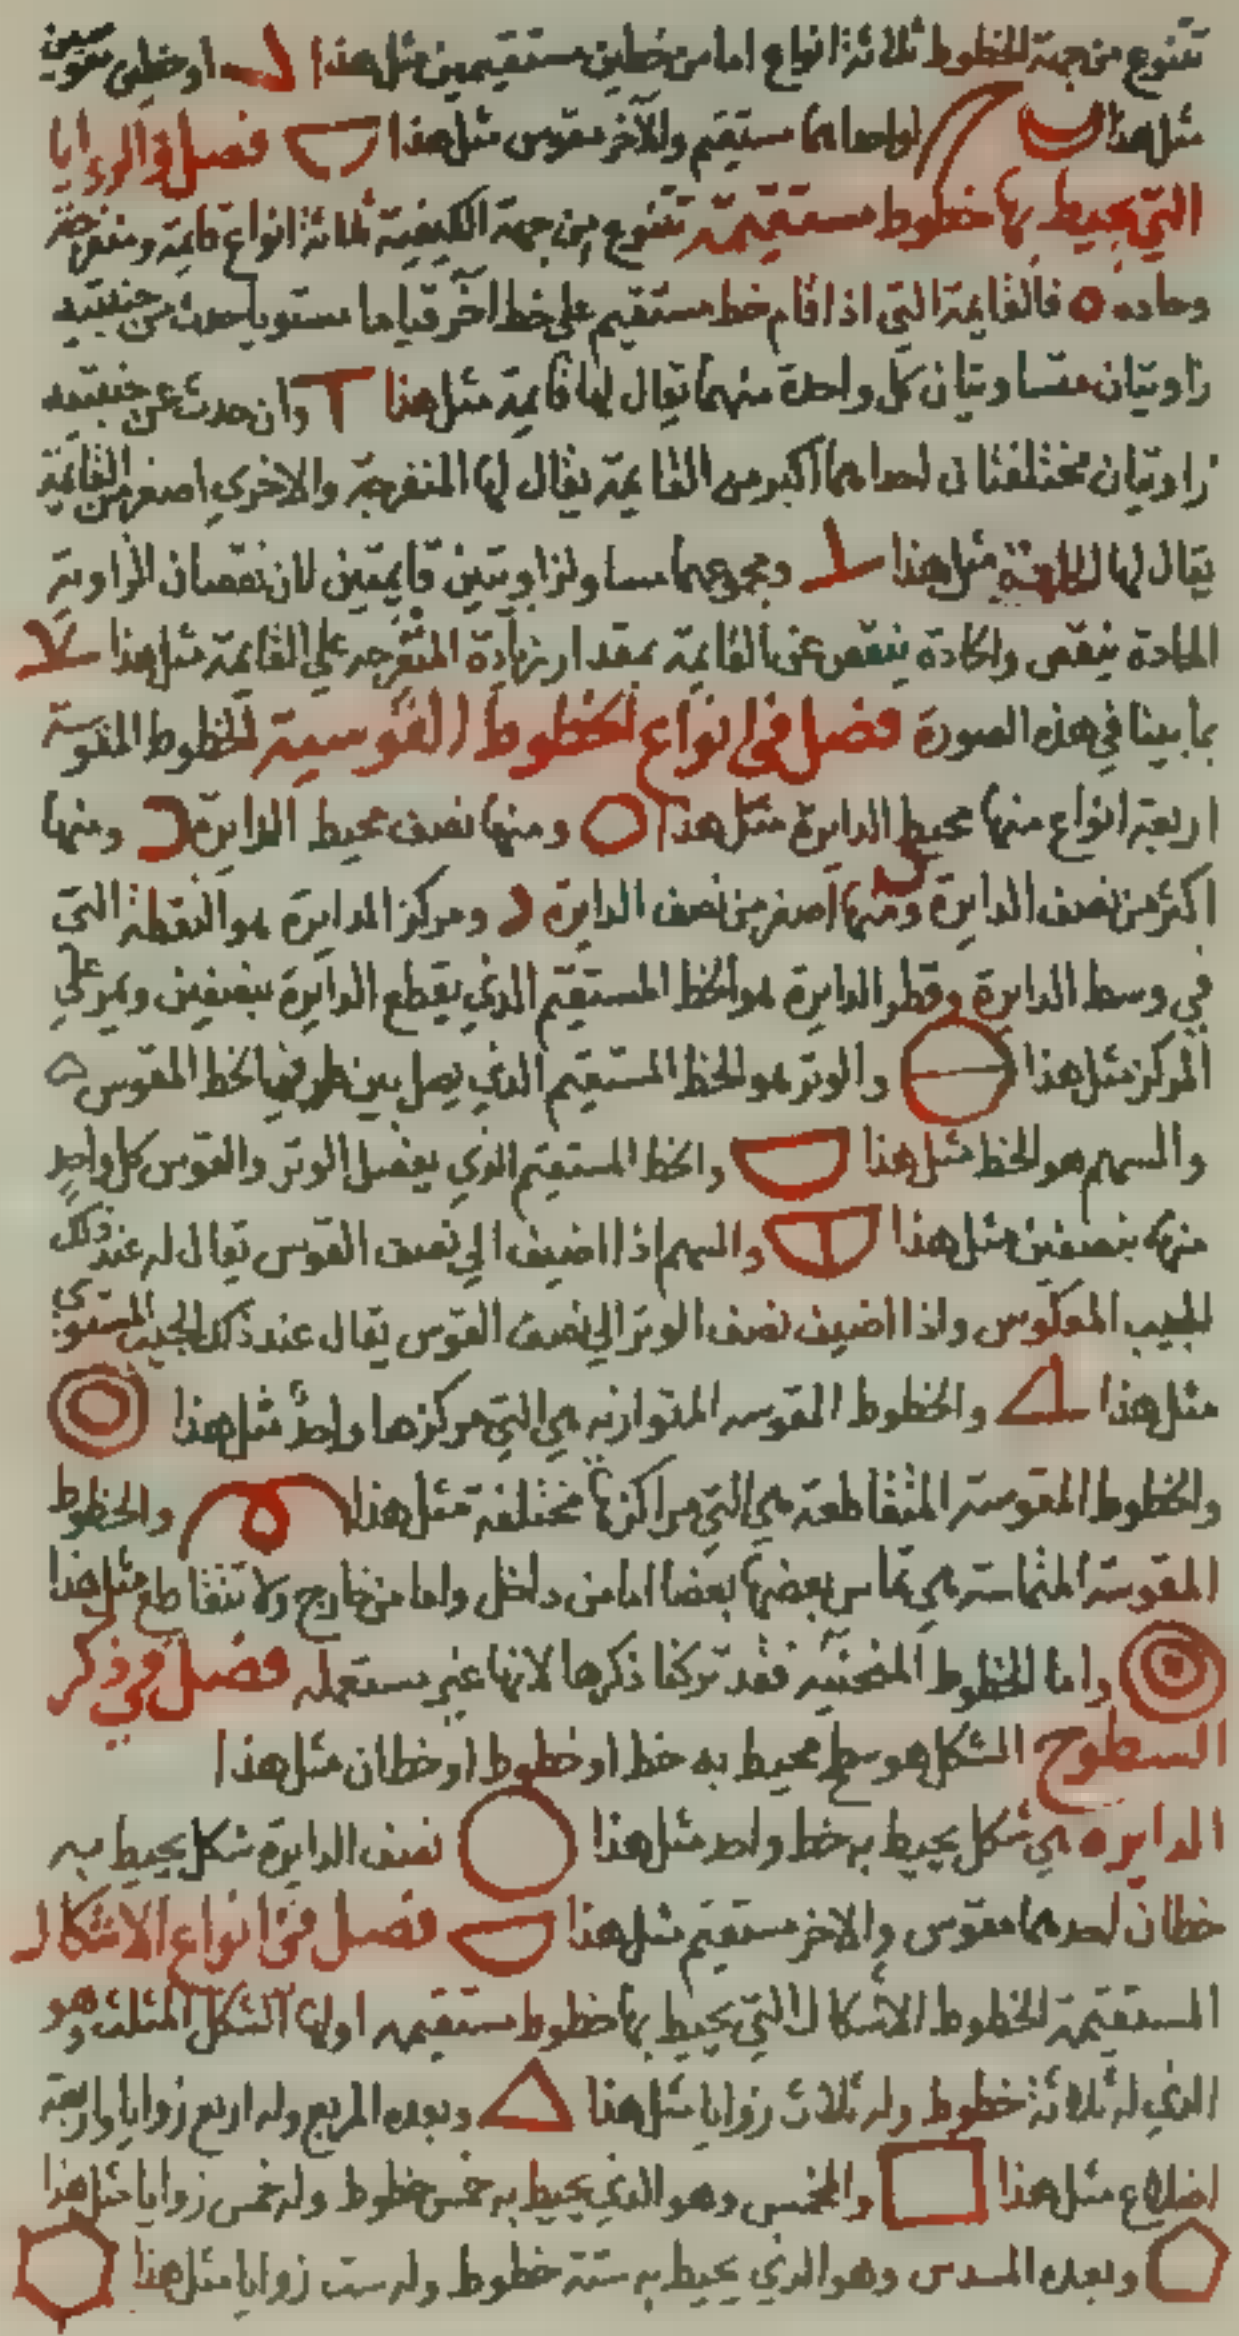 تتنوع من جهة الخطوط ثلاثة انواع اما من خطين مستقيمين مثل هذا او خطين مقوسين
مثل هذا او احدهما مستقيم والآخر مقوس مثل هذا فصل في الزوايا
التي يحيط بها خطوط مستقيمة تتنوع من جهة الكيفية ثلاثة انواع قايمة ومنفرجة
وحاده فالقايمة التي اذا قام خط مستقيم على خط آخر قياما مستويا حدث من جنبتيه
زاويتان متساويتان كل واحدة منهما يقال لها قايمة مثل هذا وان حدث عن جنبتيه
زاويتان مختلفتان احداهما اكبر من القايمة يقال لها المنفرجة والاخرى اصغر من القايمة
يقال لها الحادة مثل هذا ومجموعهما مساو لزاويتين قايمتين لان نقصان الزاوية
الحادة ينقص والحادة ينقص عن القايمة بمقدار زيادة المنفرجه على القايمة مثل هذا
بما بينا في هذه الصورة فصل في انواع الخطوط القوسية الخطوط المقوسة
اربعة انواع منها محيط الدايرة مثل هذا ومنها نصف محيط الدايرة ومنها
اكثر من نصف الدايرة ومنها اصغر من نصف الدايرة ومركز الدايرة هو النقطة التي
في وسط الدايرة وقطر الدايرة هو الخط المستقيم الذي يقطع الدايرة بنصفين ويمر على
المركز مثل هذا والوتر هو الخط المستقيم الذي يصل بين طرفي الخط المقوس
والسهم هو الخط مثل هذا والخط المستقيم الذي يفصل الوتر والقوس كل واحد
منهما بنصفين مثل هذا والسهم اذا اضيف الى نصف القوس يقال له عند ذلك
الجيب المعكوس واذا اضيف نصف الوتر الى نصف القوس يقال عند ذلك الجيب المستوى
مثل هذا والخطوط المقوسه المتوازيه هي التي مركزها واحد مثل هذا
والخطوط المقوسة المتقاطعة هي التي مراكزها مختلفة مثل هذا والخطوط
المقوسة المتماسة هي تماس بعضها بعضا اما من داخل واما من خارج ولا تتقاطع مثل هذا
واما الخطوط المنحنيه فقد تركنا ذكرها لانها غير مستعمله فصل في ذكر
السطوح الشكل هو سطح محيط به خط او خطوط او خطان مثل هذا
الدايره هي شكل يحيط به خط واحد مثل هذا نصف الدايرة شكل يحيط به
خطان احدهما مقوس والاخر مستقيم مثل هذا فصل في انواع الاشكال
المستقيمة الخطوط الاشكال التي يحيط بها خطوط مستقيمه اولها الشكل المثلث وهو
الذي له ثلاثة خطوط وله ثلاث زوايا مثل هذا وبعده المربع وله اربع زوايا واربعة
اضلاع مثل هذا والمخمس وهو الذي يحيط به خمس خطوط وله خمس زوايا مثل هذا
وبعده المسدس وهو الذي يحيط به ستة خطوط وله ست زوايا مثل هذا